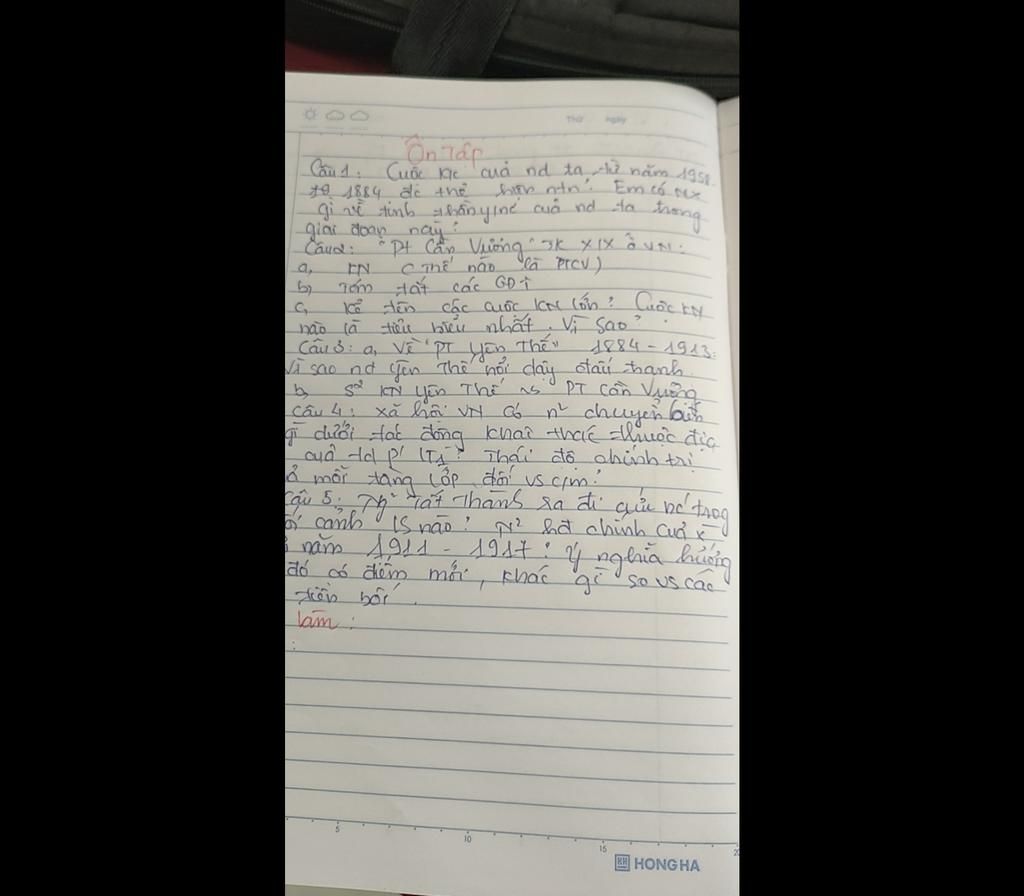 Thứ ngày
Ôn Tập
Câu 1: Cuộc k/c cuả nd ta từ năm 1958
1884 đc thể hiện ntn? Em có nx
gì về tinh thần y/nc cuả nd ta trong
giai đoạn này?
Câu 2: "Pt Cần Vương" TK XIX ở VN:
a, KN (Thế nào là PTCV)
b, Tóm tắt các GĐ↑
c, Kể tên các cuộc KN lớn? Cuộc KN
nào là tiêu biểu nhất. Vì sao?
Câu 3: a, Về "PT Yên Thế" 1884 - 1913:
Vì sao nd Yên Thế nổi dậy đấu tranh
b, S² KN Yên Thế vs PT Cần Vương
Câu 4: xã hội VN có n² chuyển biến
gì dưới tác động khai thác thuộc địa
cuả td P' lT1? Thái độ chính trị
mỗi tầng lớp đối vs c/m?
Câu 5: Ng² Tất Thành ra đi cứu nc trog
cảnh LS nào? N² hđ chính cuả
năm 1911 - 1917? Ý nghĩa hướng
đó có điểm mới, khác gì so vs các
tiền bối.
làm:
:
5 10 15 20
HH HONG HA